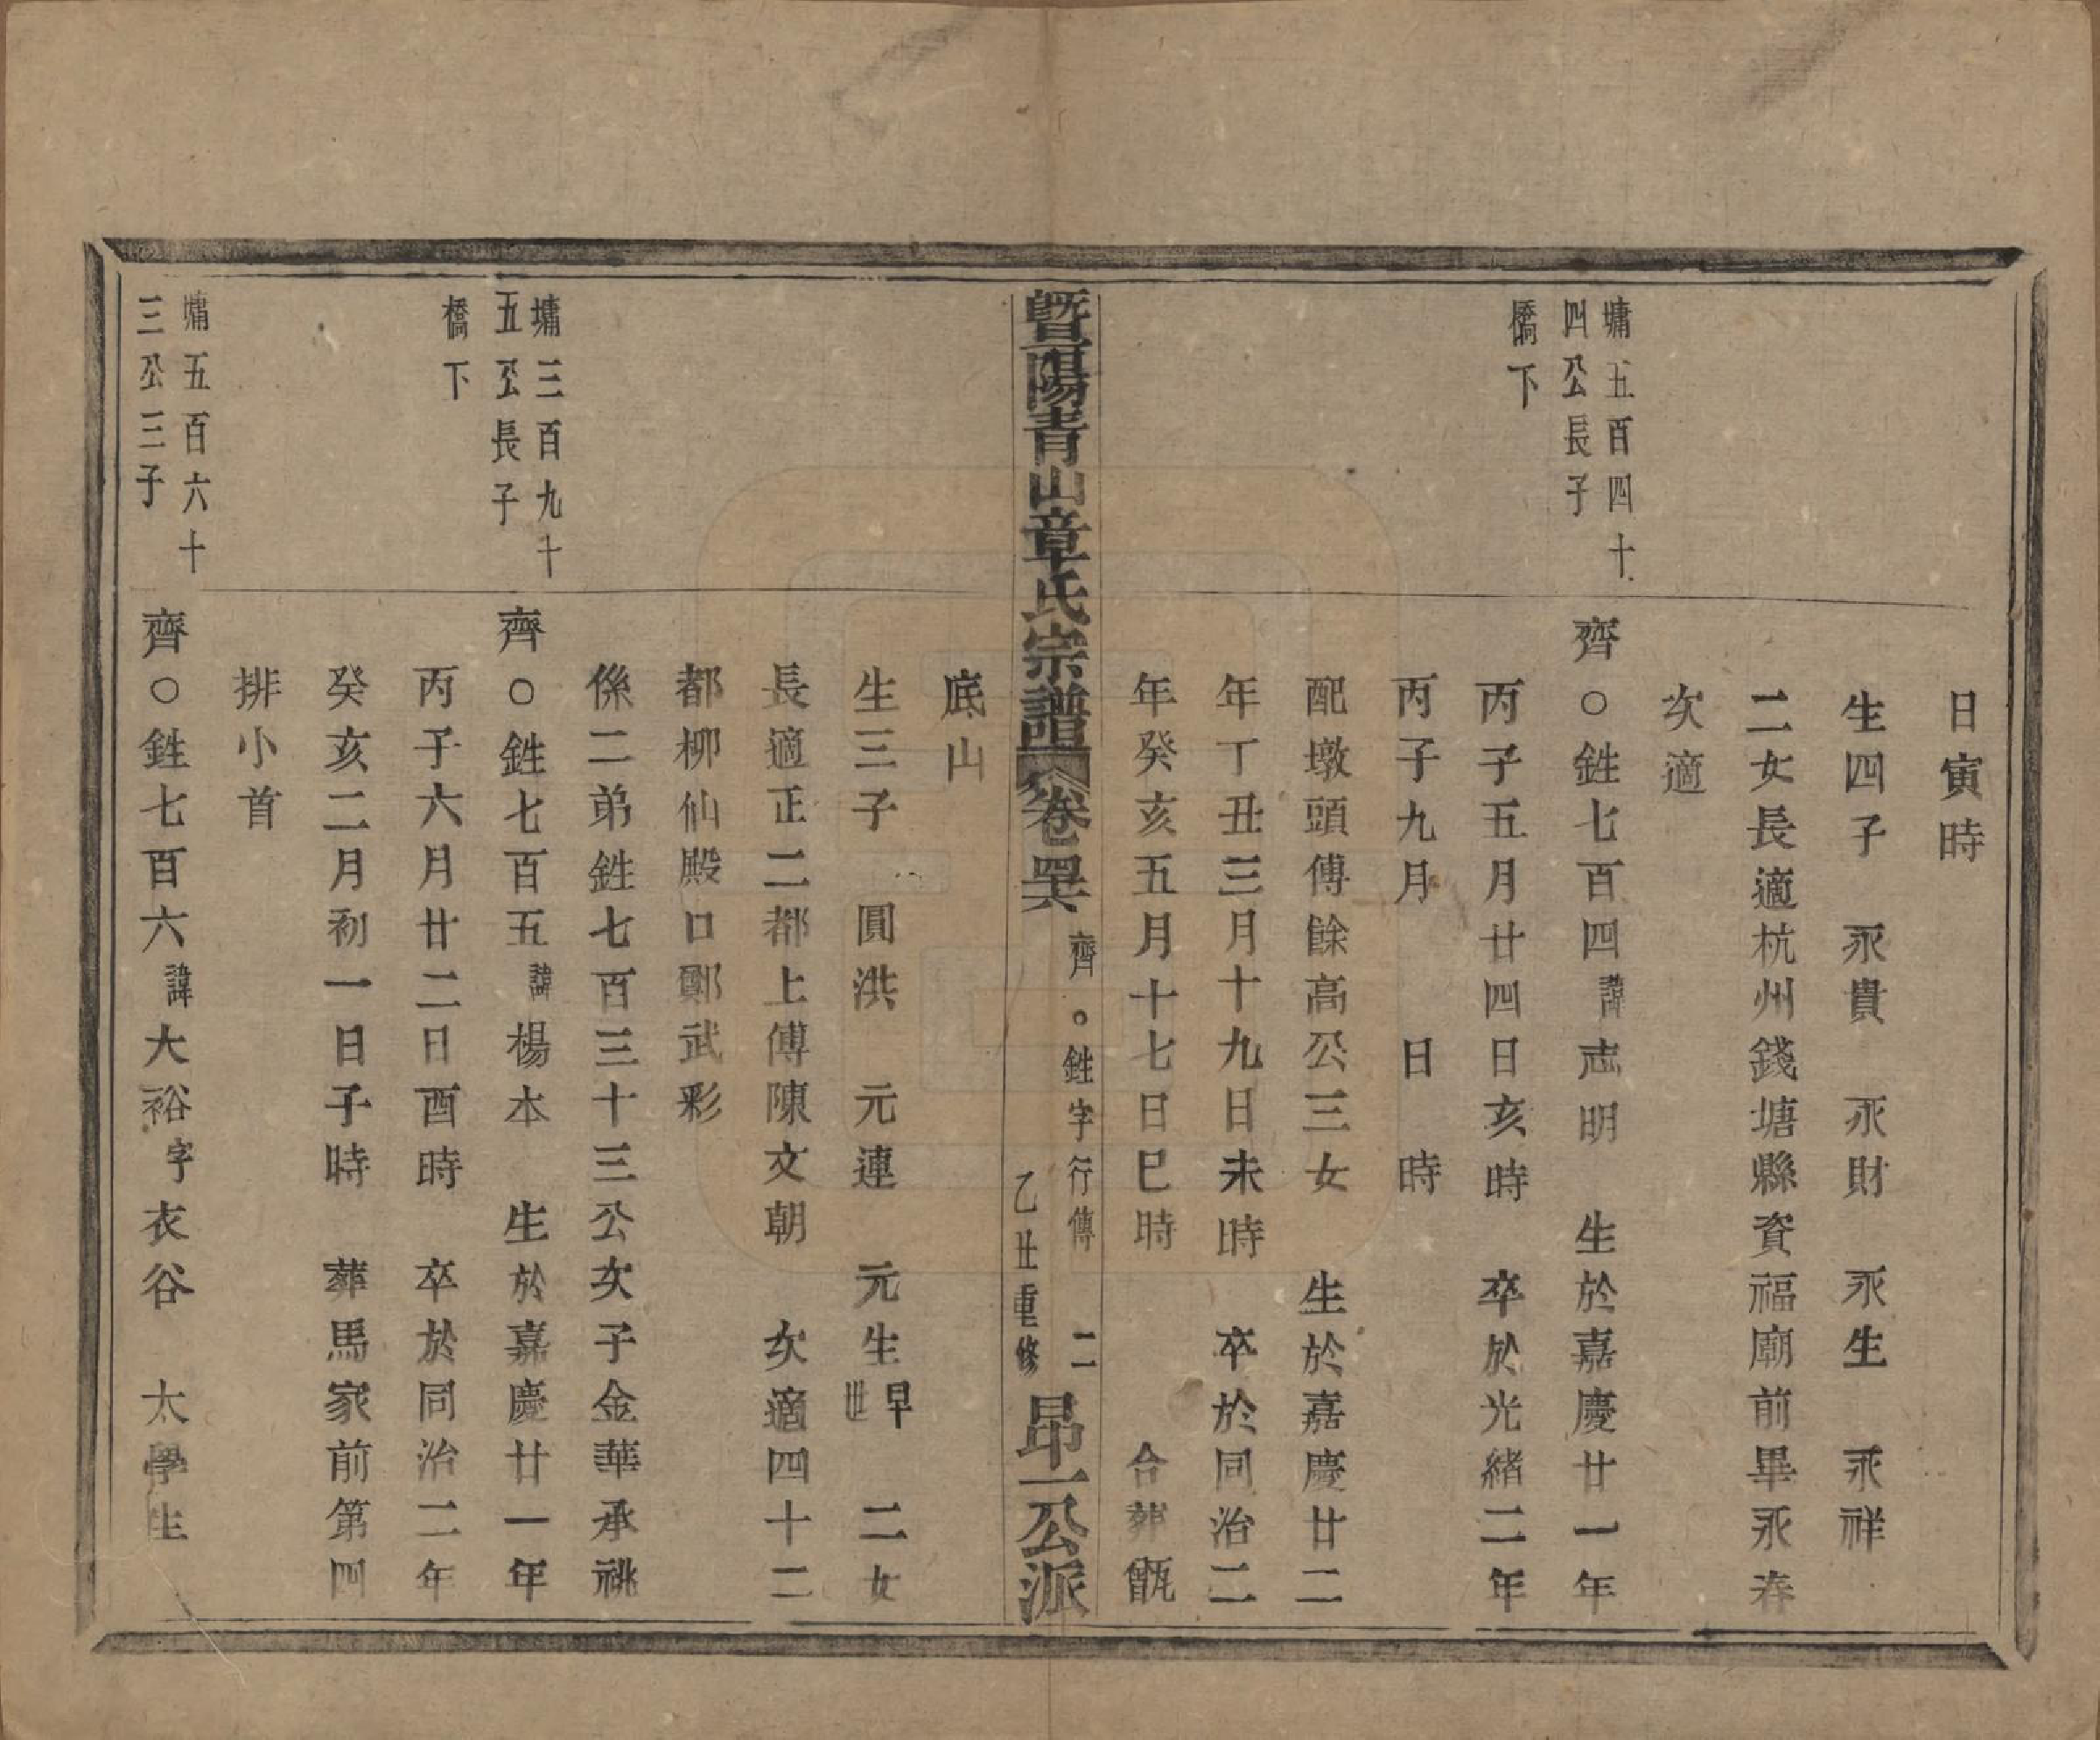 日寅時
生四子　永貴　永財　永生　永祥
二女長適杭州錢塘縣資福廟前畢永春
次適
墉五百四十
四公長子
橋下
齊○鉎七百四諱志明　生於嘉慶廿一年
丙子五月廿四日亥時　卒於光緒二年
丙子九月　　日　時
配墩頭傅餘高公三女　生於嘉慶廿二
年丁丑三月十九日未時　卒於同治二
年癸亥五月十七日巳時　　　合葬甑
暨陽青山章氏宗譜　卷四六　齊○鉎字行傳　二　乙丑重修　昂一公派
底山
生三子　圓洪　元連　元生早世　二女
長適正二都上傅陳文朝　次適四十二
都柳仙殿口鄭武彩
係二弟鉎七百三十三公次子金華承祧
墉三百九十
五公長子
橋下
齊○鉎七百五諱楊本　生於嘉慶廿一年
丙子六月廿二日酉時　卒於同治二年
癸亥二月初一日子時　葬馬家前第四
排小首
墉五百六十
三公三子
齊○鉎七百六諱大裕字衣谷　太學生